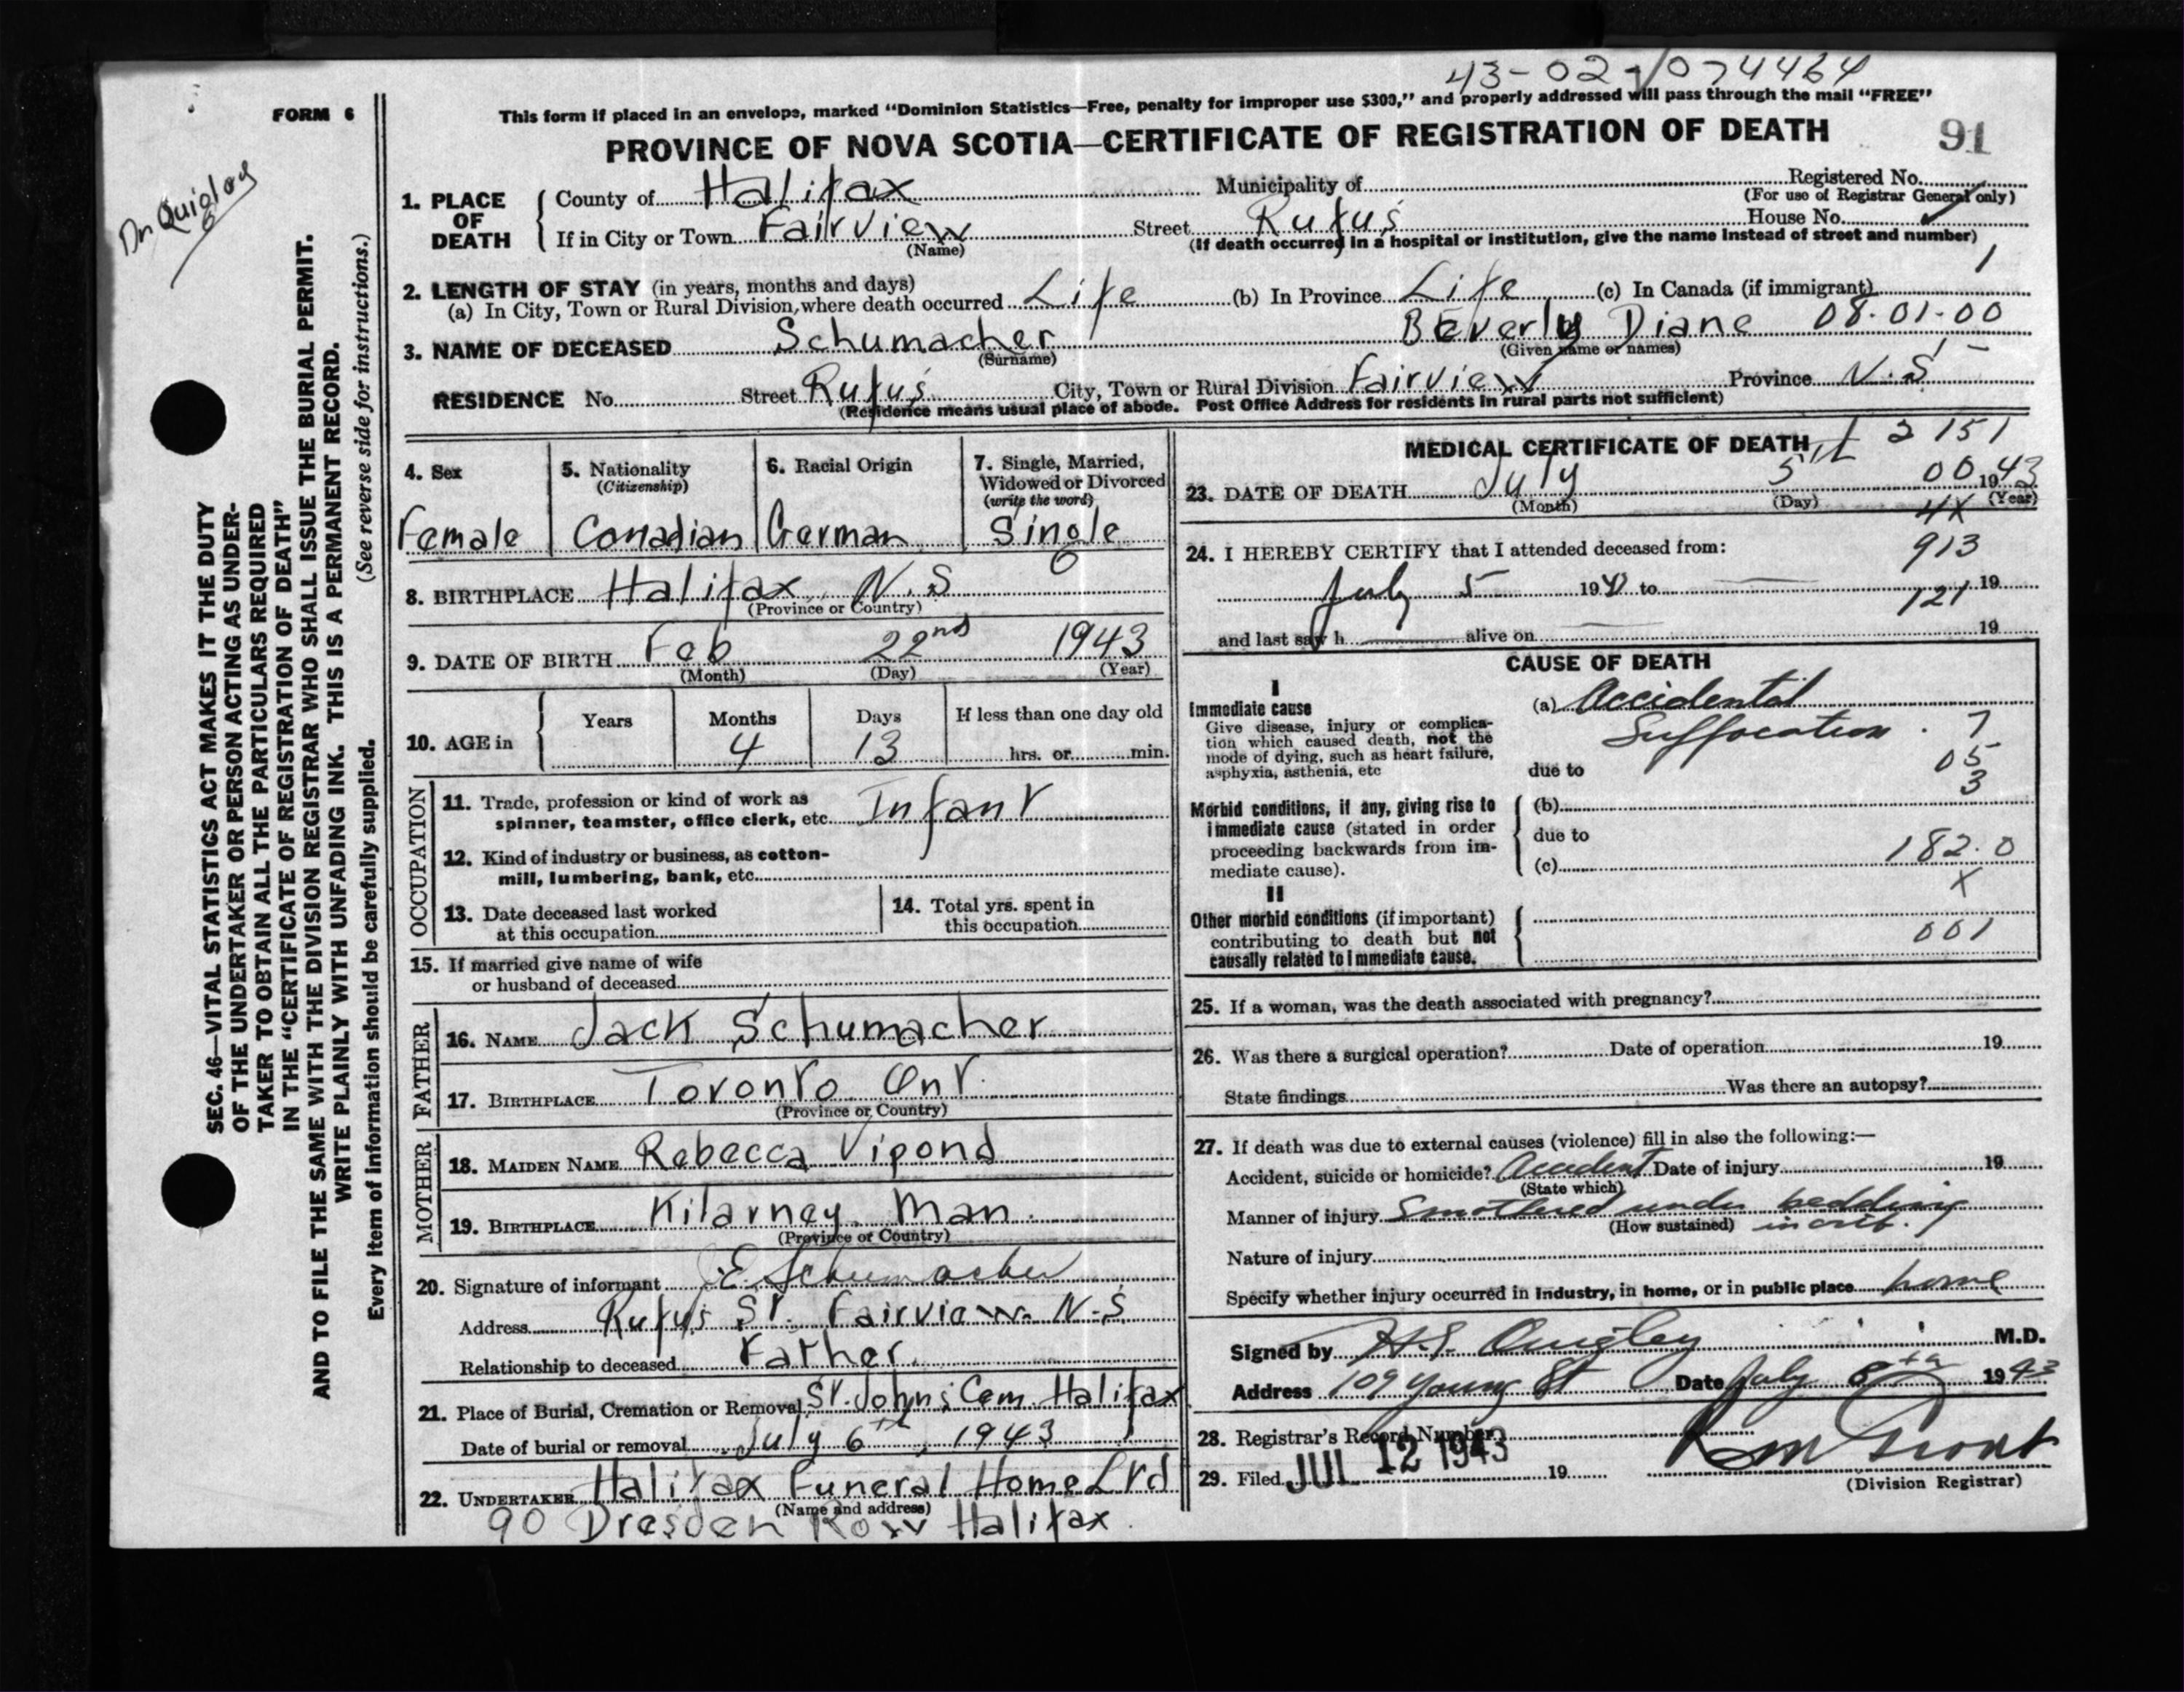 43-02-074464
FORM 6
This form if placed in an envelope, marked "Dominion Statistics—Free, penalty for improper use $300," and properly addressed will pass through the mail "FREE"
PROVINCE OF NOVA SCOTIA—CERTIFICATE OF REGISTRATION OF DEATH
91
Dr Quigley
SEC. 46—VITAL STATISTICS ACT MAKES IT THE DUTY
OF THE UNDERTAKER OR PERSON ACTING AS UNDER-
TAKER TO OBTAIN ALL THE PARTICULARS REQUIRED
IN THE "CERTIFICATE OF REGISTRATION OF DEATH"
AND TO FILE THE SAME WITH THE DIVISION REGISTRAR WHO SHALL ISSUE THE BURIAL PERMIT.
WRITE PLAINLY WITH UNFADING INK. THIS IS A PERMANENT RECORD.
Every item of information should be carefully supplied. (See reverse side for instructions.)
1. PLACE OF DEATH
County of Halifax Municipality of Registered No.
(For use of Registrar General only)
If in City or Town Fairview Street Rufus House No.
(Name) (If death occurred in a hospital or institution, give the name instead of street and number)
1
2. LENGTH OF STAY (in years, months and days)
(a) In City, Town or Rural Division, where death occurred Life (b) In Province Life (c) In Canada (if immigrant)
3. NAME OF DECEASED Schumacher Beverly Diane 08-01-00
(Surname) (Given name or names)
RESIDENCE No. Street Rufus City, Town or Rural Division Fairview Province N.S
(Residence means usual place of abode. Post Office Address for residents in rural parts not sufficient)
4. Sex
Female
5. Nationality
(Citizenship)
Canadian
6. Racial Origin
German
7. Single, Married,
Widowed or Divorced
(write the word)
Single
8. BIRTHPLACE Halifax N.S
(Province or Country)
9. DATE OF BIRTH Feb 22nd 1943
(Month) (Day) (Year)
10. AGE in
Years Months Days If less than one day old
4 13 hrs. or min.
OCCUPATION
11. Trade, profession or kind of work as
spinner, teamster, office clerk, etc. Infant
12. Kind of industry or business, as cotton-
mill, lumbering, bank, etc.
13. Date deceased last worked
at this occupation
14. Total yrs. spent in
this occupation
15. If married give name of wife
or husband of deceased
FATHER
16. NAME Jack Schumacher
17. BIRTHPLACE Toronto Ont.
(Province or Country)
MOTHER
18. MAIDEN NAME Rebecca Vipond
19. BIRTHPLACE Kilarney Man.
(Province or Country)
20. Signature of informant E Schumacher
Address Rufus St. Fairview N.S
Relationship to deceased Father
21. Place of Burial, Cremation or Removal St. Johns Cem. Halifax
Date of burial or removal July 6th, 1943
22. UNDERTAKER Halifax Funeral Home Ltd
(Name and address)
90 Dresden Row Halifax.
MEDICAL CERTIFICATE OF DEATH
2151
23. DATE OF DEATH July 5 00 1943
(Month) (Day) (Year)
4X
24. I HEREBY CERTIFY that I attended deceased from:
913
July 5 19 to 19
121
and last saw h alive on 19
CAUSE OF DEATH
I
Immediate cause
Give disease, injury or complica-
tion which caused death, not the
mode of dying, such as heart failure,
asphyxia, asthenia, etc
(a) Accidental
Suffocation. 7
due to 05
3
Morbid conditions, if any, giving rise to
immediate cause (stated in order
proceeding backwards from im-
mediate cause).
(b)
due to
(c) 182.0
X
II
Other morbid conditions (if important)
contributing to death but not
causally related to immediate cause.
001
25. If a woman, was the death associated with pregnancy?
26. Was there a surgical operation? Date of operation 19
State findings Was there an autopsy?
27. If death was due to external causes (violence) fill in also the following:—
Accident, suicide or homicide? Accident Date of injury 19
(State which)
Manner of injury Smothered under bedding
(How sustained) in crib.
Nature of injury
Specify whether injury occurred in industry, in home, or in public place home
Signed by Quigley M.D.
Address 109 Young St Date July 8th 1943
28. Registrar's Record Number
29. Filed JUL 12 1943 19
(Division Registrar)